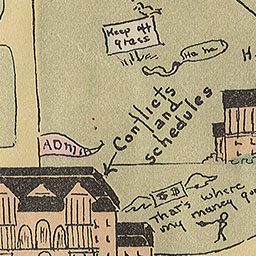 Keep off
grass
Ha ha
H
ADMIN
Conflicts
and
schedules
$$
That's where
my money goes